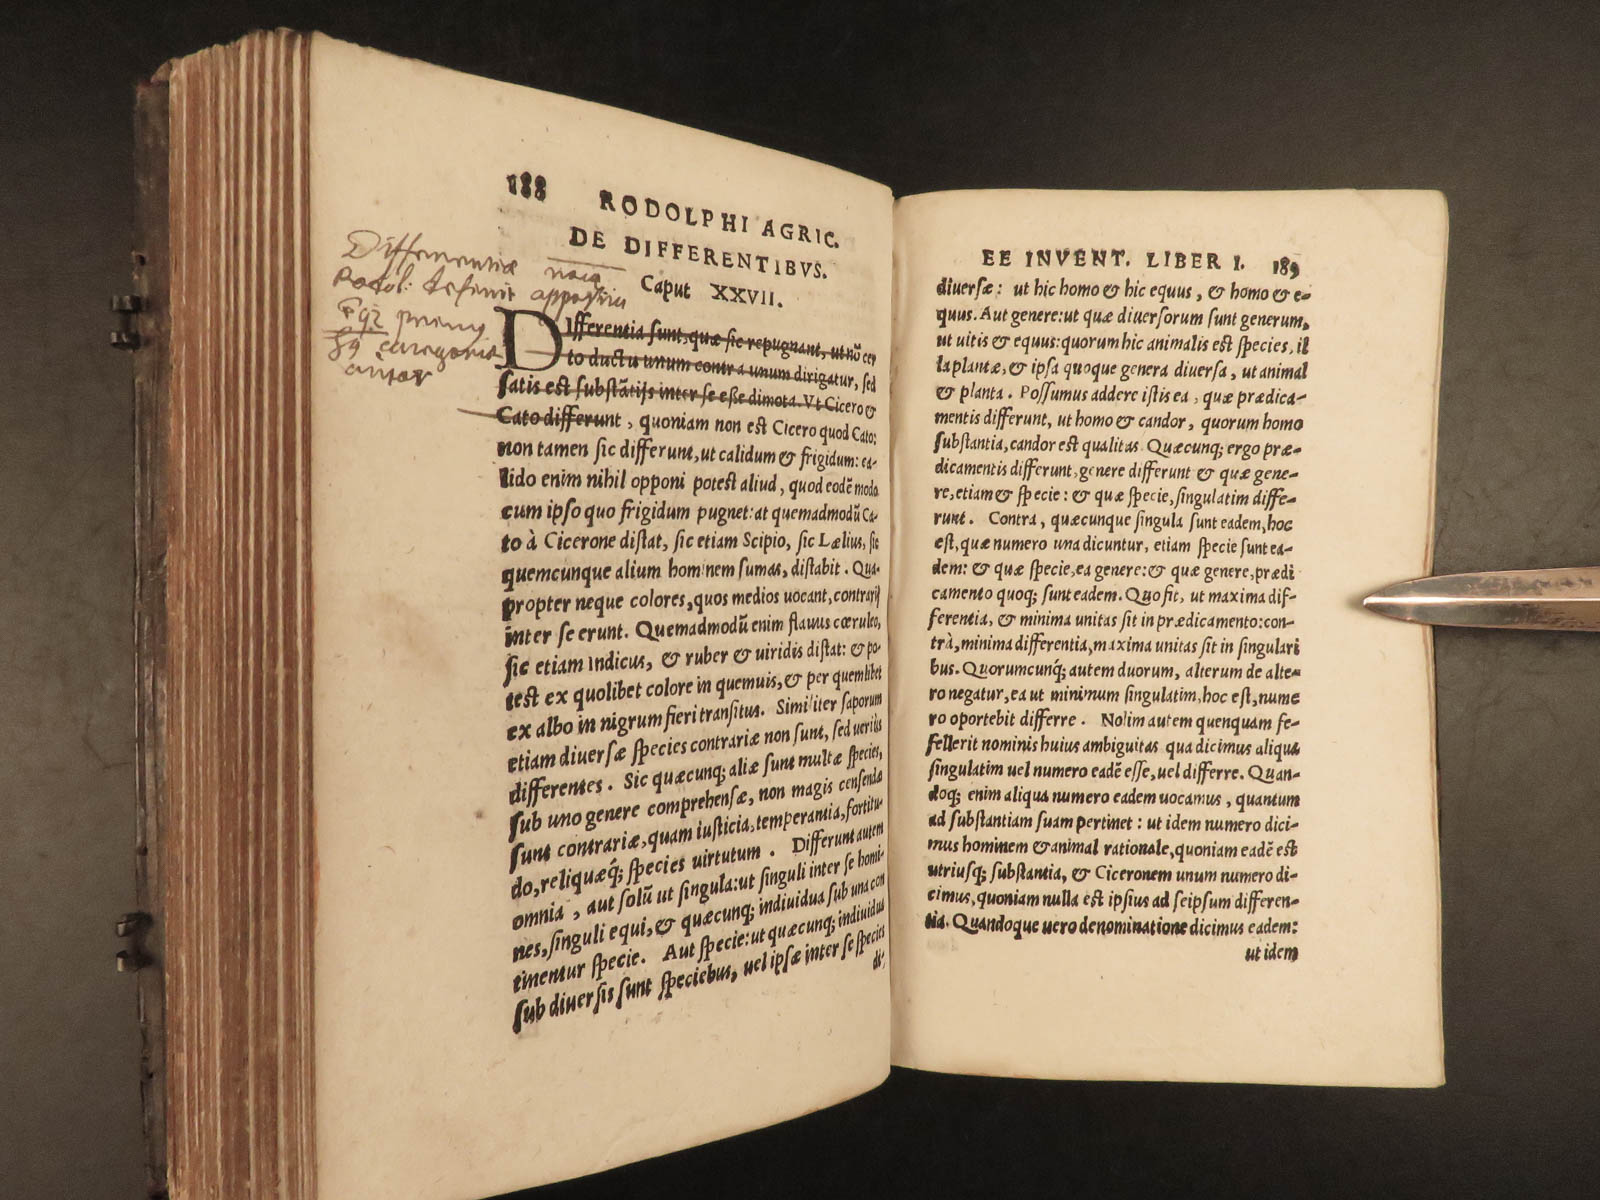 188 RODOLPHI AGRIC.
DE DIFFERENTIBVS.
Caput XXVII.
Differentiæ
Rodol: 
DIfferentia sunt, quæ sic repugnant, ut nõ cer
to ductu unum contra unum dirigatur, sed
satis est substãtijs inter se eße dimota. Vt Cicero &
Cato differunt, quoniam non est Cicero quod Cato:
non tamen sic differunt, ut calidum & frigidum: ca-
lido enim nihil opponi potest aliud, quod eodẽ modo
cum ipso quo frigidum pugnet: at quemadmodũ Ca-
to à Cicerone distat, sic etiam Scipio, sic Lælius, sic
quemcunque alium hominem sumas, distabit. Qua-
propter neque colores, quos medios uocant, contrarij
inter se erunt. Quemadmodũ enim flauus cœruleo,
sic etiam Indicus, & ruber & uiridis distat: & po-
test ex quolibet colore in quemuis, & per quemlibet
ex albo in nigrum fieri transitus. Similiter saporum
etiam diuersæ species contrariæ non sunt, sed ueriùs
differentes. Sic quæcunq; aliæ sunt multæ species,
sub uno genere comprehensæ, non magis censendæ
sunt contrariæ, quam iusticia, temperantia, fortitu-
do, reliquæq́; species uirtutum. Differunt autem
omnia, aut solũ ut singula: ut singuli inter se homi-
nes, singuli equi, & quæcunq; indiuidua sub una con
tinentur specie. Aut specie: ut quæcunq; indiuidua
sub diuersis sunt speciebus, uel ipsæ inter se species
di-
EE INVENT. LIBER I. 189
diuersæ: ut hic homo & hic equus, & homo & e-
quus. Aut genere: ut quæ diuersorum sunt generum,
ut uitis & equus: quorum hic animalis est species, il
la plantæ, & ipsa quoque genera diuersa, ut animal
& planta. Possumus addere istis ea, quæ prædica-
mentis differunt, ut homo & candor, quorum homo
substantia, candor est qualitas. Quæcunq; ergo præ-
dicamentis differunt, genere differunt & quæ gene-
re, etiam & specie: & quæ specie, singulatim diffe-
runt. Contra, quæcunque singula sunt eadem, hoc
est, quæ numero una dicuntur, etiam specie sunt ea-
dem: & quæ specie, ea genere: & quæ genere, prædi
camento quoq; sunt eadem. Quo fit, ut maxima dif-
ferentia, & minima unitas sit in prædicamento: con-
trà, minima differentia, maxima unitas sit in singulari
bus. Quorumcunq́; autem duorum, alterum de alte-
ro negatur, ea ut minimum singulatim, hoc est, nume
ro oportebit differre. Nolim autem quenquam fe-
fellerit nominis huius ambiguitas qua dicimus aliqua
singulatim uel numero eadẽ esse, uel differre. Quan-
doq; enim aliqua numero eadem uocamus, quantum
ad substantiam suam pertinet: ut idem numero dici-
mus hominem & animal rationale, quoniam eadẽ est
utriusq; substantia, & Ciceronem unum numero di-
cimus, quoniam nulla est ipsius ad seipsum differen-
tia. Quandoque uero denominatione dicimus eadem:
ut idem